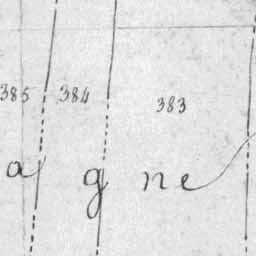 385 384 383
a g n e